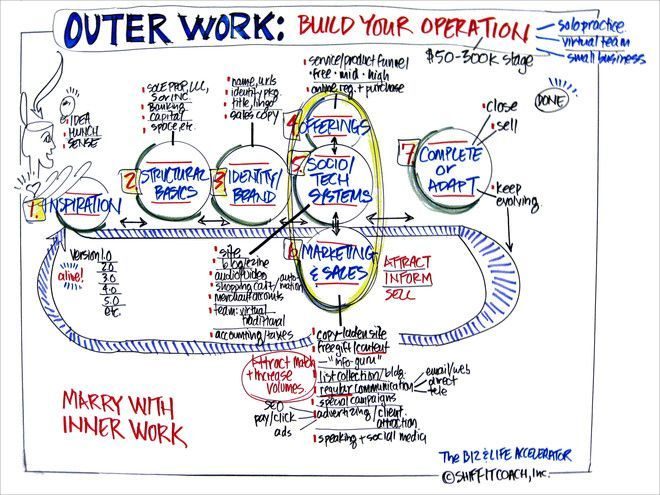 OUTER WORK: BUILD YOUR OPERATION
solo practice
virtual team
small business
$50-300K stage
IDEA
HUNCH
SENSE
1. INSPIRATION
SOLE PROP, LLC,
S or INC.
Banking
Capital
space, etc.
2. STRUCTURAL
BASICS
name, urls
identity pkg.
title, lingo
sales copy
3. IDENTITY/
BRAND
service/product funnel
free · mid · high
online reg. + purchase
4. OFFERINGS
5. SOCIO/
TECH
SYSTEMS
6. MARKETING
& SALES
ATTRACT
INFORM
SELL
close
sell
DONE
7. COMPLETE
OR
ADAPT
keep
evolving
Version 1.0
2.0
3.0
4.0
5.0
etc.
alive!
site
blog/zine
audio/video
shopping cart/automation
merchant accounts
team: virtual
traditional
accounting/taxes
copy-laden site
free gift/content
"info-guru"
list collection/bldg.
regular communication
email/web
direct
tele
special campaigns
advertizing/client
attraction
speaking + social media
attract match
+ increase
volumes.
SEO
pay/click
ads
MARRY WITH
INNER WORK
The BIZ & LIFE ACCELERATOR
© SHIFT-IT COACH, Inc.